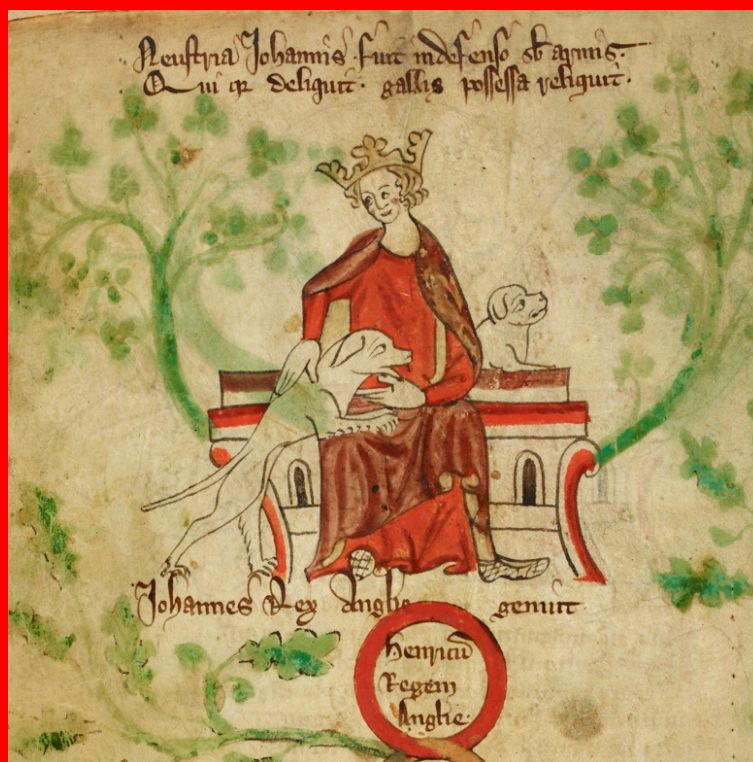 Neustria Johannis fuit indefenso sb armis.
Qui qr deliquit. gallis possessa reliquit.
Johannes Rex Anglie genuit
Henricū
Regem
Anglie.